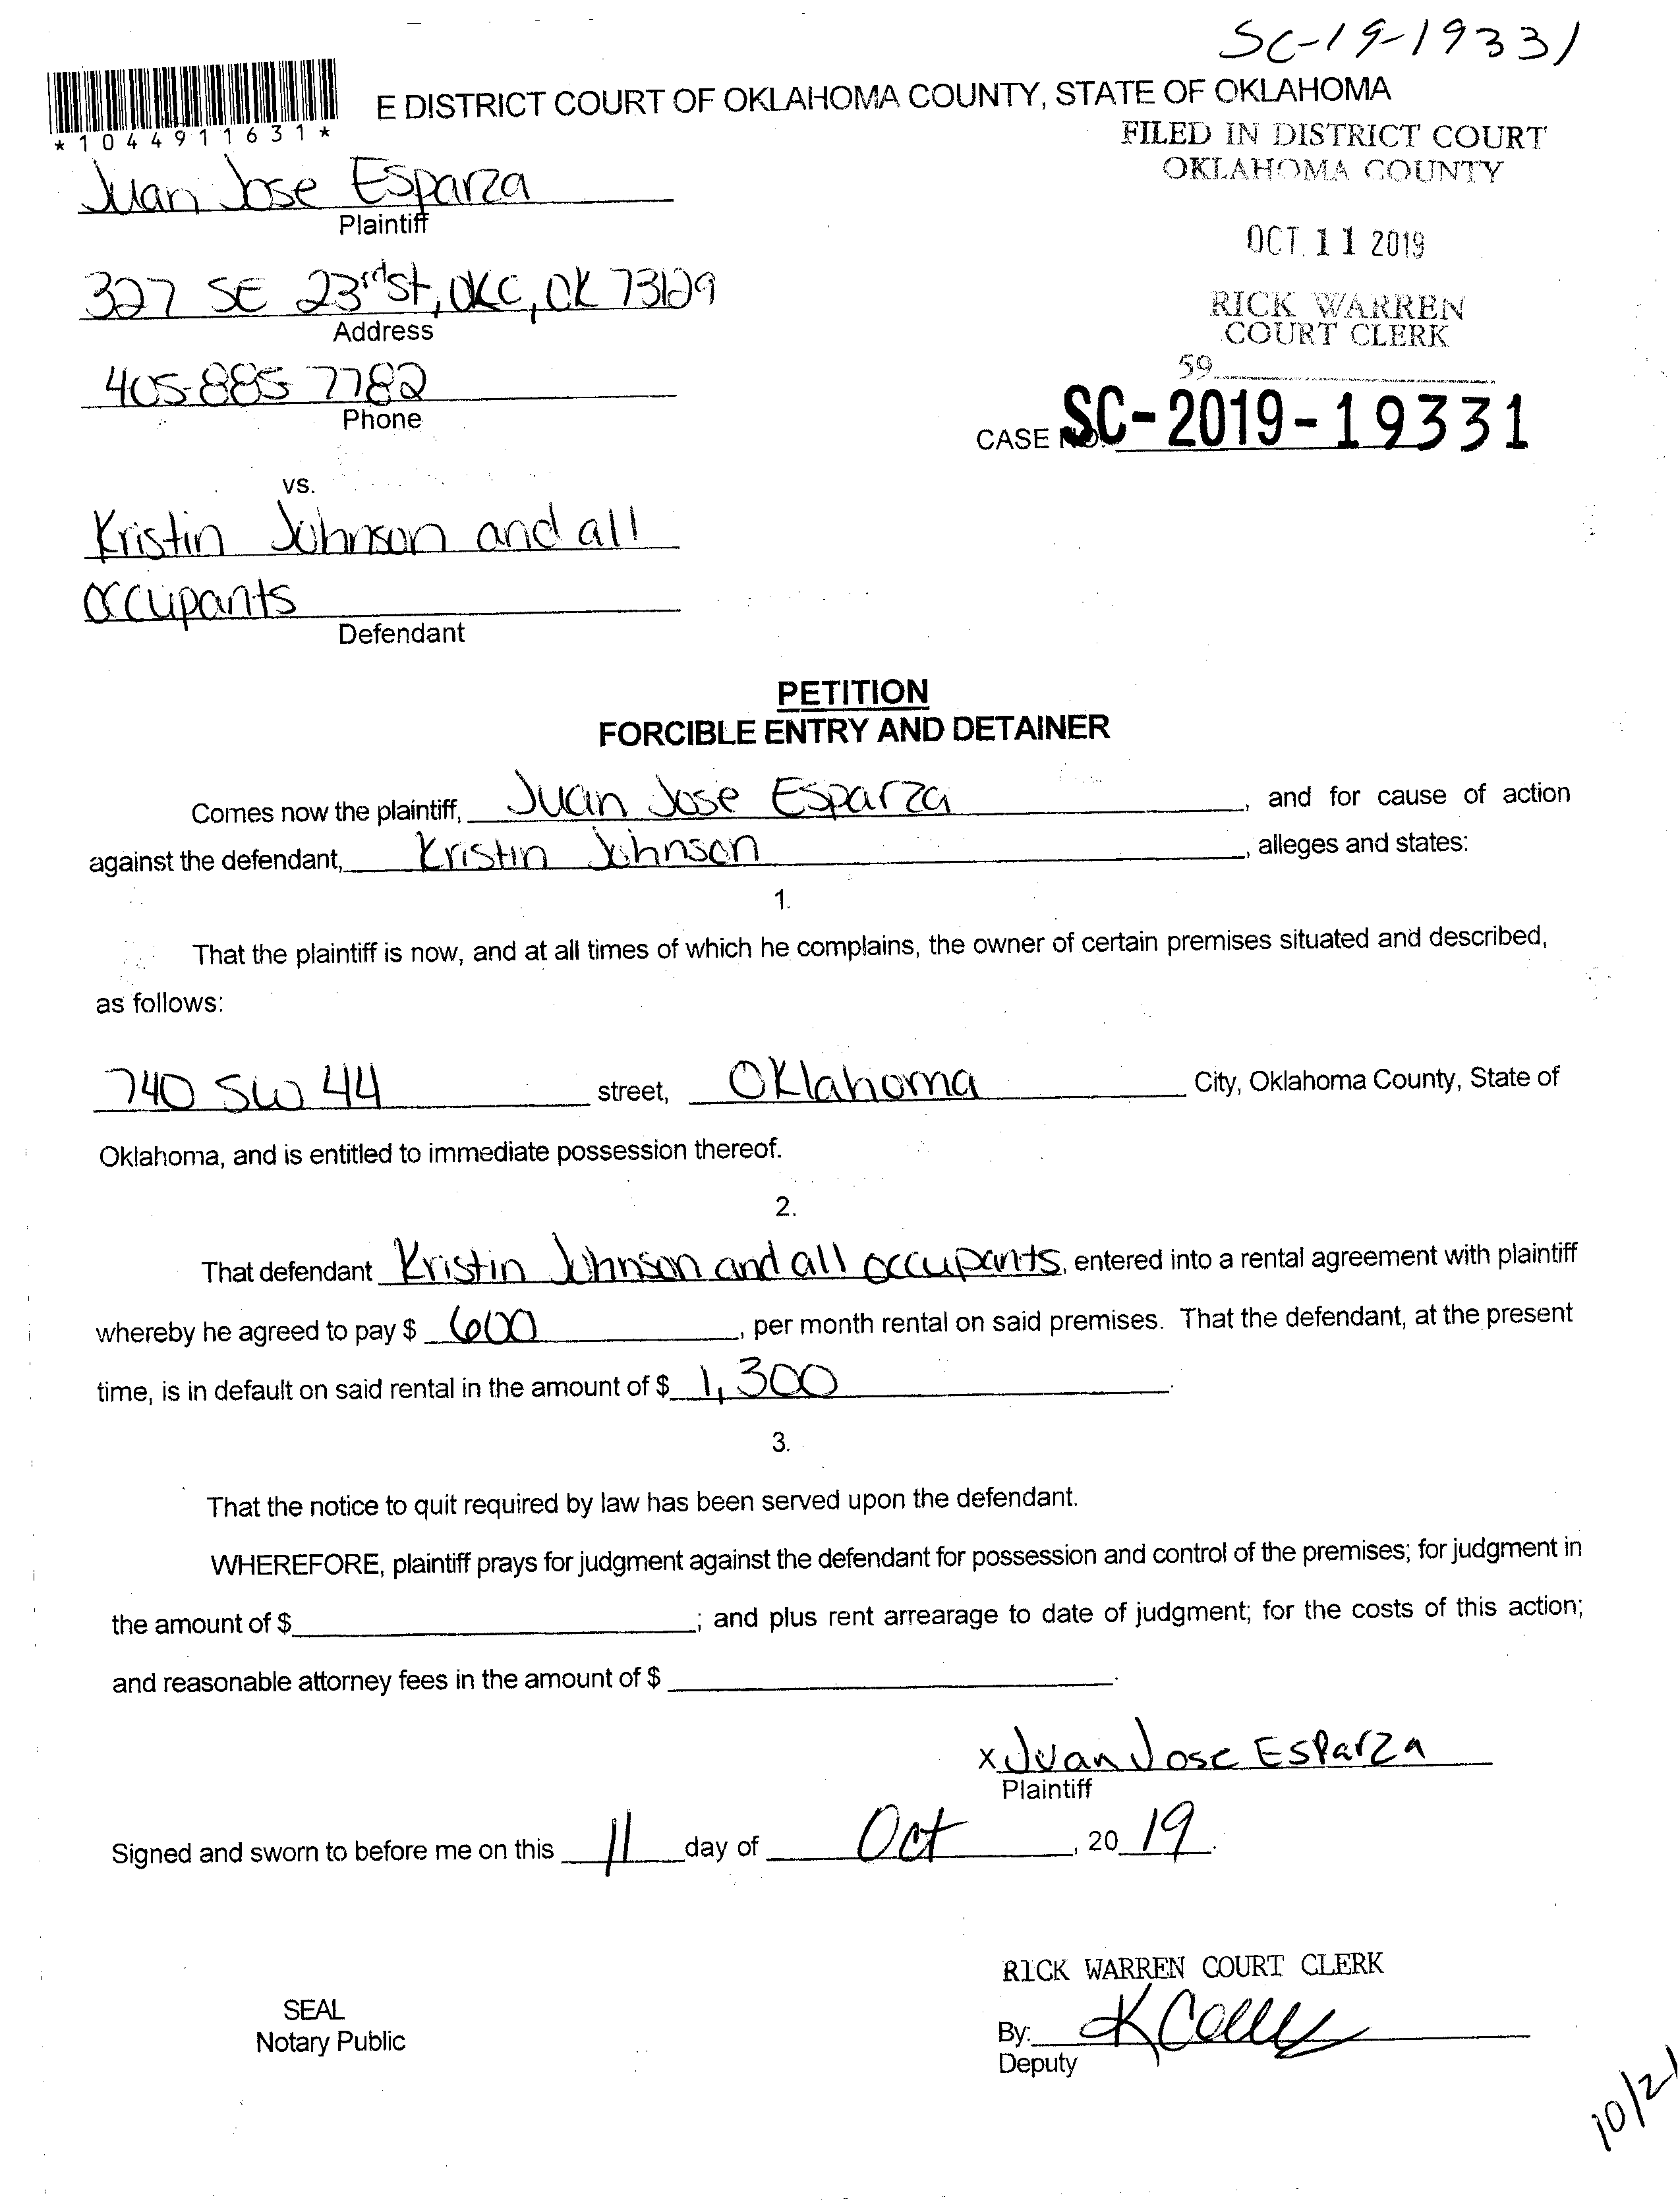 SC-19-19331
E DISTRICT COURT OF OKLAHOMA COUNTY, STATE OF OKLAHOMA
*1044911631*
FILED IN DISTRICT COURT
OKLAHOMA COUNTY
Juan Jose Esparza
Plaintiff
OCT. 11 2019
327 SE 23rd St, OKC, OK 73129
Address
RICK WARREN
COURT CLERK
59
405-885-7782
Phone
CASE NO. SC-2019-19331
vs.
Kristin Johnson and all
occupants
Defendant
PETITION
FORCIBLE ENTRY AND DETAINER
Comes now the plaintiff, Juan Jose Esparza, and for cause of action
against the defendant, Kristin Johnson, alleges and states:
1.
That the plaintiff is now, and at all times of which he complains, the owner of certain premises situated and described,
as follows:
740 SW 44 street, Oklahoma City, Oklahoma County, State of
Oklahoma, and is entitled to immediate possession thereof.
2.
That defendant Kristin Johnson and all occupants, entered into a rental agreement with plaintiff
whereby he agreed to pay $ 600, per month rental on said premises. That the defendant, at the present
time, is in default on said rental in the amount of $ 1,300.
3.
That the notice to quit required by law has been served upon the defendant.
WHEREFORE, plaintiff prays for judgment against the defendant for possession and control of the premises; for judgment in
the amount of $ ; and plus rent arrearage to date of judgment; for the costs of this action;
and reasonable attorney fees in the amount of $ .
x Juan Jose Esparza
Plaintiff
Signed and sworn to before me on this 11 day of Oct, 20 19.
RICK WARREN COURT CLERK
SEAL
Notary Public
By:
Deputy
10/21